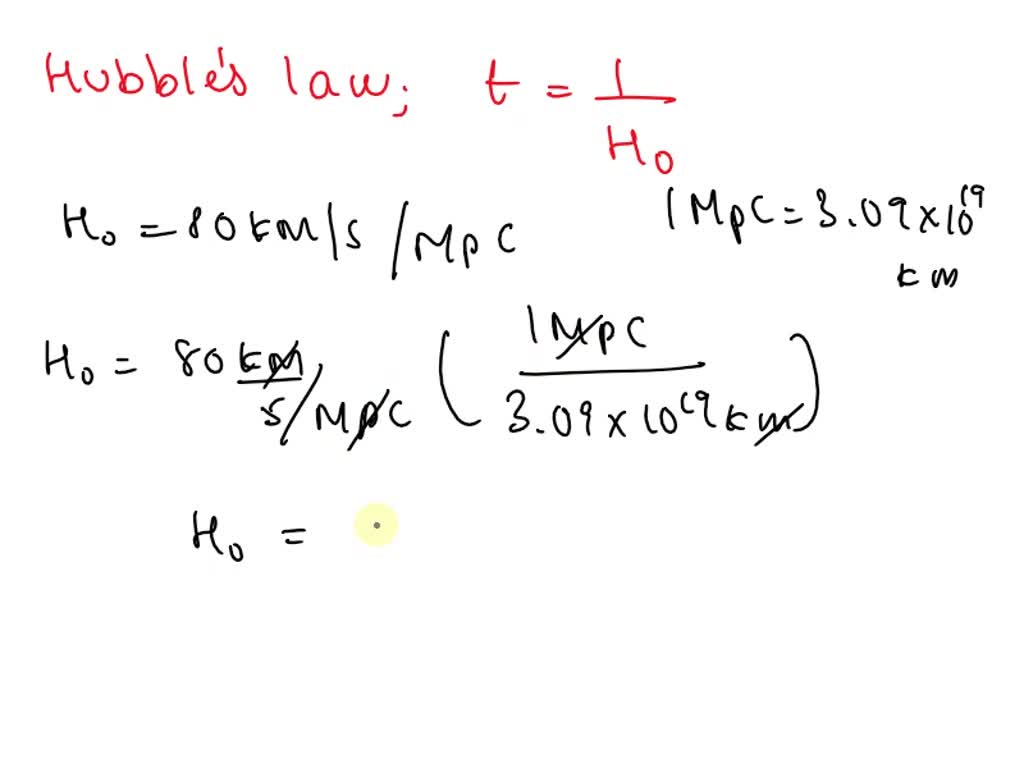 Hubble's law; t = 1/H₀
H₀ = 80 km/s/Mpc
1 Mpc = 3.09 × 10¹⁹ km
H₀ = 80 km/s/Mpc (1 Mpc / 3.09 × 10¹⁹ km)
H₀ =